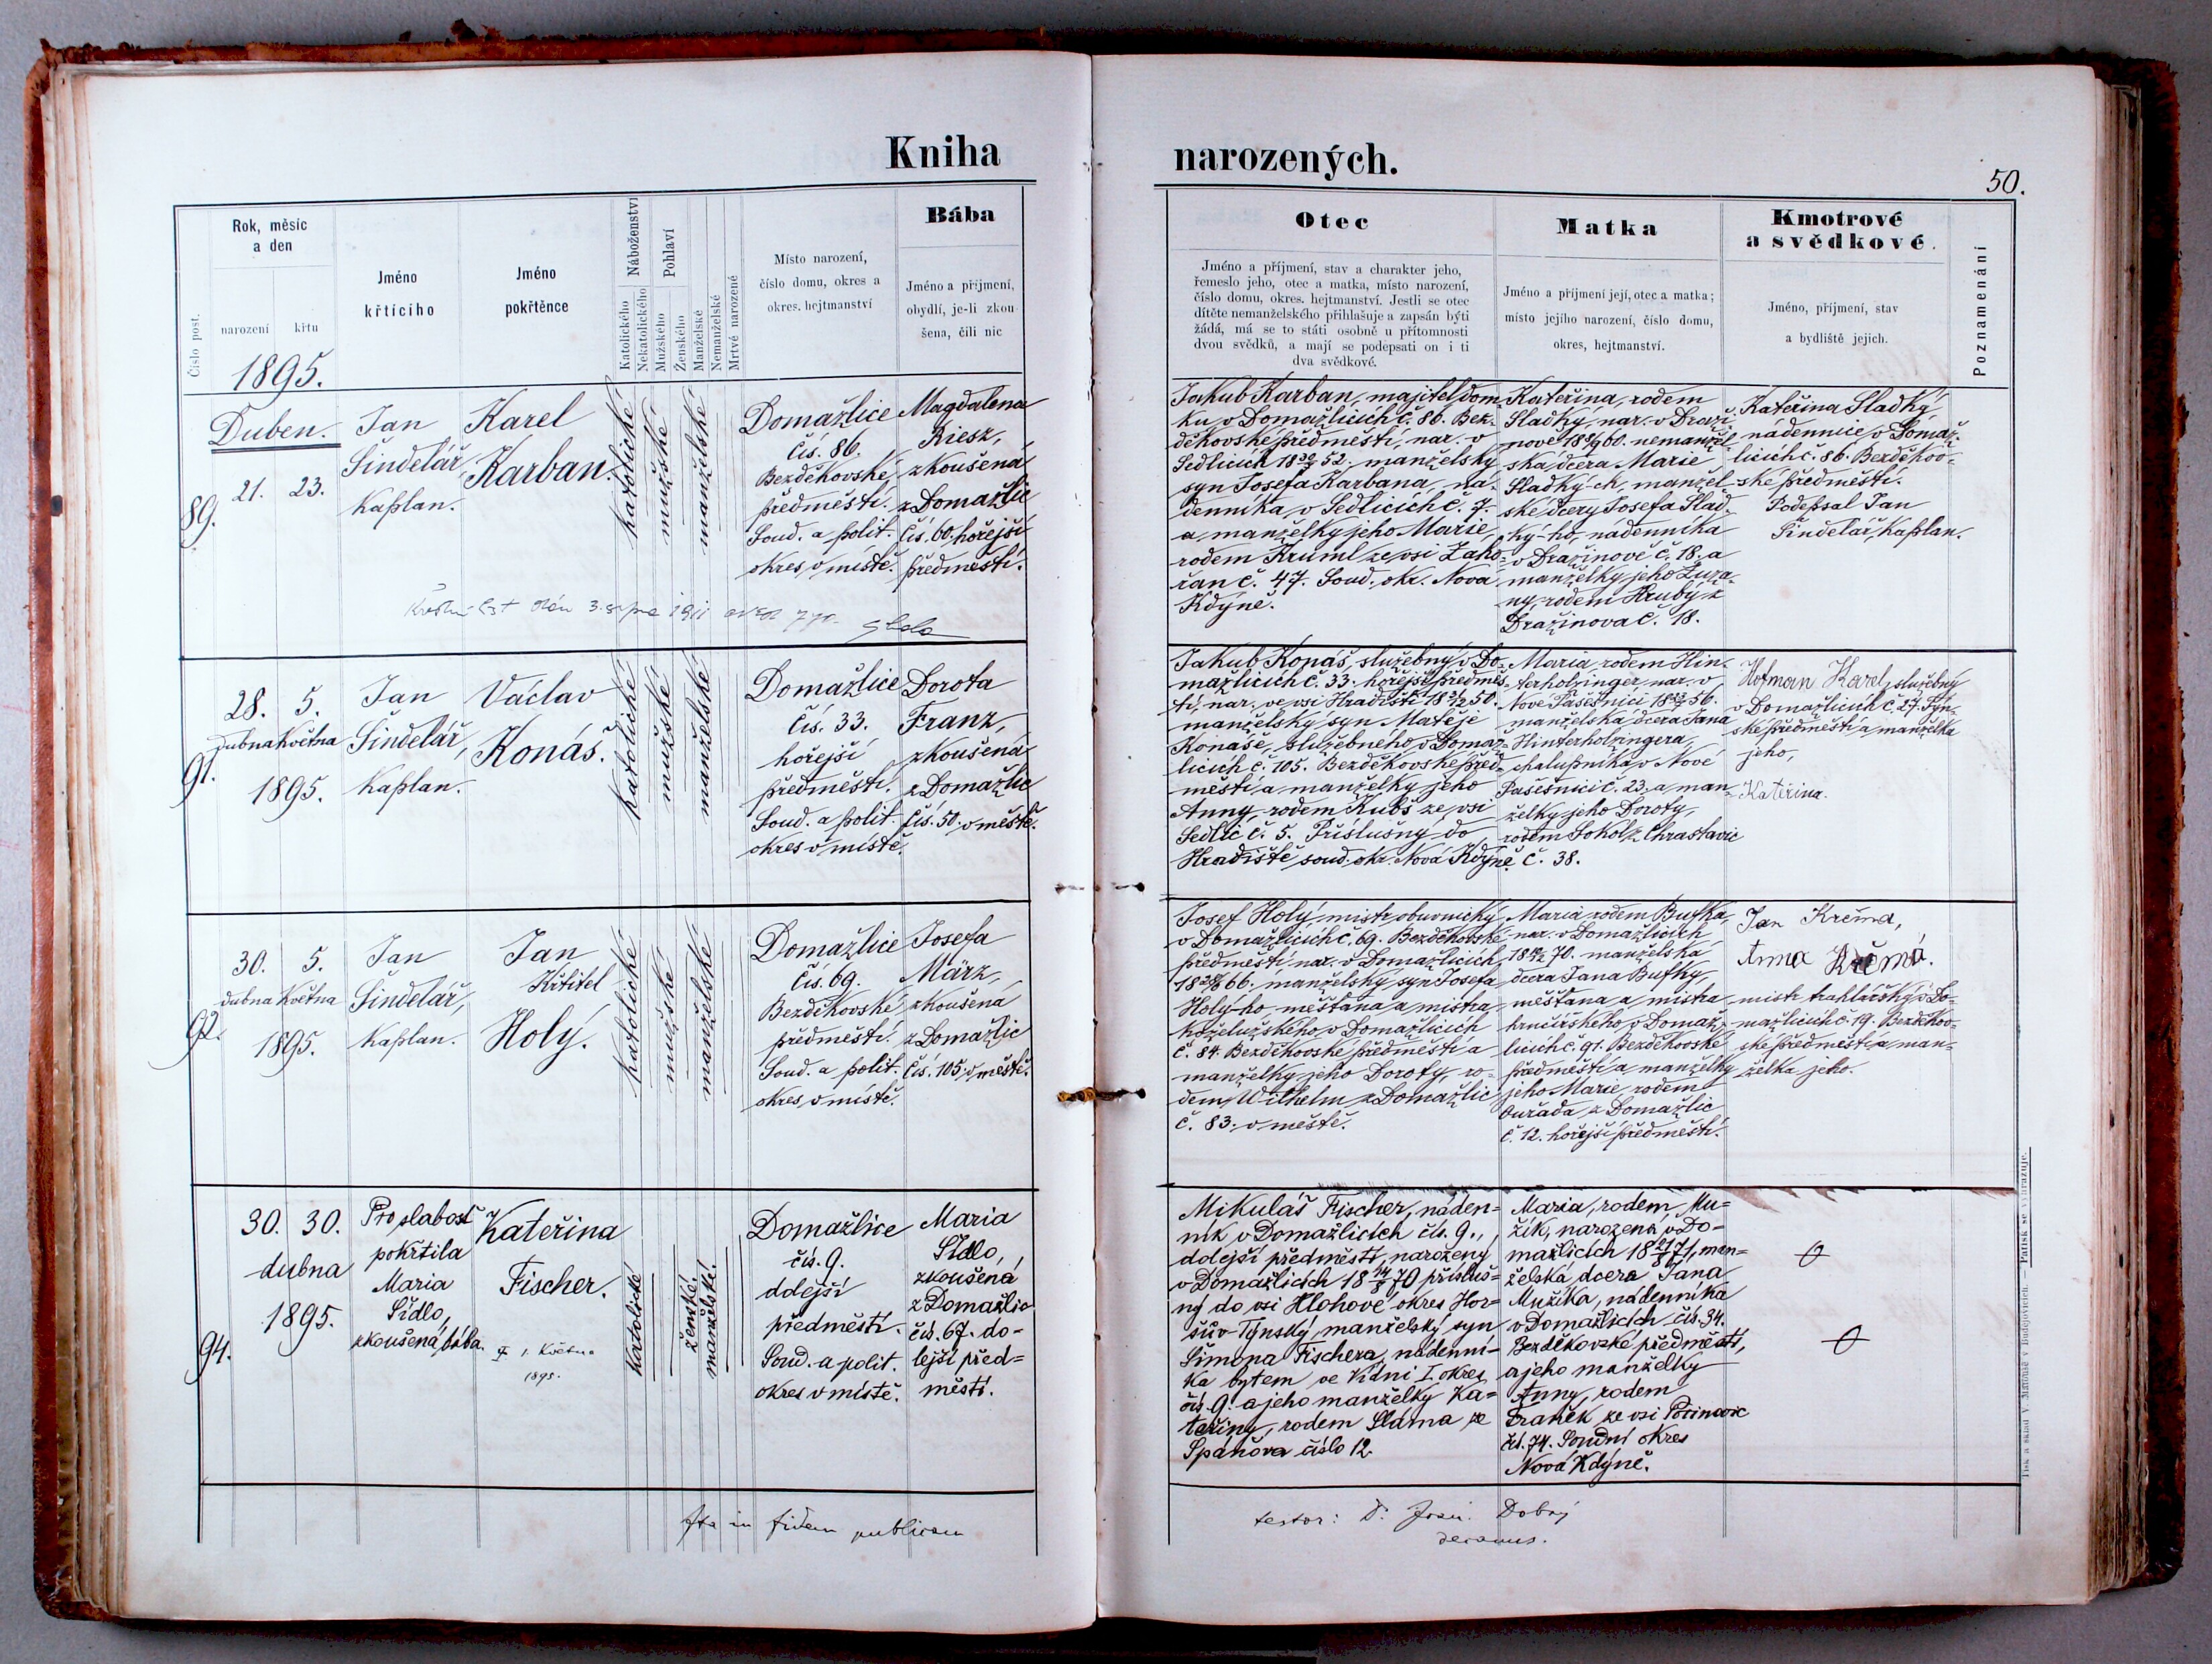 Kniha narozených.
50.
Číslo post.
Rok, měsíc
a den
narození
křtu
1895.
Jméno
křtícího
Jméno
pokřtěnce
Náboženství
Katolického
Nekatolického
Pohlaví
Mužského
Ženského
Manželské
Nemanželské
Mrtvě narozené
Místo narození,
číslo domu, okres a
okres. hejtmanství
Bába
Jméno a příjmení,
obydlí, je-li zkou-
šena, čili nic
Otec
Jméno a příjmení, stav a charakter jeho,
řemeslo jeho, otec a matka, místo narození,
číslo domu, okres. hejtmanství. Jestli se otec
dítěte nemanželského přihlašuje a zapsán býti
žádá, má se to státi osobně u přítomnosti
dvou svědků, a mají se podepsati on i ti
dva svědkové.
Matka
Jméno a příjmení její, otec a matka;
místo jejího narození, číslo domu,
okres, hejtmanství.
Kmotrové
a svědkové.
Jméno, příjmení, stav
a bydliště jejich.
Poznamenání
89.
Duben.
21. 23.
Jan
Šindelář,
kaplan.
Karel
Karban.
katolické
mužské
manželské
Domažlice
čís. 86.
Bezděkovské
předměstí.
Soud. a polit.
okres v místě.
Magdalena
Riesz,
zkoušená
z Domažlic
čís. 60. hořejší
předměstí.
Křestní list dán 3. srpna 1911
Jakub Karban, majitel dom-
ku v Domažlicích č. 86. Bez-
děkovské předměstí, nar. v
Sedlicích 18 52. manželský
syn Josefa Karbana, ná-
denníka v Sedlicích č. 7.
a manželky jeho Marie,
rodem Kruml ze vsi Zaho-
řan č. 47. Soud. okr. Nová
Kdýně.
Kateřina, rodem
Sladký, nar. v Draži-
nově 18 60. nemanžel-
ská dcera Marie
Sladký-ch, manžel-
ské dcery Josefa Slad-
ký-ho, nádenníka
v Dražinově č. 18. a
manželky jeho Zuza-
ny, rodem Hruby z
Dražinova č. 18.
Kateřina Sladký,
nádennice v Domaž-
licích č. 86. Bezděkov-
ské předměstí.
Podepsal Jan
Šindelář, kaplan.
91.
28. 5.
dubna Května
1895.
Jan
Šindelář,
kaplan.
Václav
Konáš.
katolické
mužské
manželské
Domažlice
čís. 33.
hořejší
předměstí.
Soud. a polit.
okres v místě.
Dorota
Franz,
zkoušená
z Domažlic
čís. 50. v městě.
Jakub Konáš, služebný v Do-
mažlicích č. 33. hořejší předměs-
tí, nar. ve vsi Hradišti 18 50.
manželský syn Matěje
Konáše, služebného v Domaž-
licích č. 105. Bezděkovské před-
městí a manželky jeho
Anny, rodem Kubš ze vsi
Sedlic č. 5. Příslušný do
Hradiště soud. okr. Nová Kdýně.
Maria rodem Hin-
terholzinger nar. v
Nové Pašešnici 18 56.
manželská dcera Jana
Hinterholzingera,
chalupníka v Nové
Pašešnici č. 23. a man-
želky jeho Doroty,
rodem Sokol z Chrastavic
č. 38.
Hofman Karel, služebný
v Domažlicích č. 27. Týn-
ské předměstí a manželka
jeho,
Kateřina.
92.
30. 5.
dubna Května
1895.
Jan
Šindelář,
kaplan.
Jan
Křtitel
Holý.
katolické
mužské
manželské
Domažlice
čís. 69.
Bezděkovské
předměstí.
Soud. a polit.
okres v místě.
Josefa
März,
zkoušená
z Domažlic
čís. 105. v městě.
Josef Holý, mistr obuvnický
v Domažlicích č. 69. Bezděkovské
předměstí nar. v Domažlicích
18 66. manželský syn Josefa
Holý-ho, měšťana a mistra
koželužského v Domažlicích
č. 84. Bezděkovské předměstí a
manželky jeho Doroty, ro-
dem Wilhelm z Domažlic
č. 83. v městě.
Maria rodem Bufka,
nar. v Domažlicích
18 70. manželská
dcera Jana Bufky,
měšťana a mistra
hrnčířského v Domaž-
licích č. 91. Bezděkovské
předměstí a manželky
jeho Marie, rodem
Ouřada z Domažlic
č. 12. hořejší předměstí.
Jan Krčma,
Anna Krčmá.
mistr truhlářský v Do-
mažlicích č. 19. Bezděkov-
ské předměstí a man-
želka jeho.
94.
30. 30.
dubna
1895.
Pro slabost
pokřtila
Maria
Šídlo,
zkoušená bába.
Kateřina
Fischer.
1. Května
1895.
katolické
ženské.
manželské.
Domažlice
čís. 9.
dolejší
předměstí.
Soud. a polit.
okres v místě.
Maria
Šídlo,
zkoušená
z Domažlic
čís. 67. do-
lejší před-
městí.
Mikuláš Fischer, náden-
ník v Domažlicích čís. 9.,
dolejší předměstí, narozený
v Domažlicích 18 70 přísluš-
ný do vsi Hlohové okres Hor-
šův Týnský, manželský syn
Šimona Fischera, nádenní-
ka bytem ve Vídni I. okres
čís. 9. a jeho manželky Ka-
teřiny, rodem Sláma ze
Spáňova číslo 12.
Maria, rodem Mu-
žík, narozená v Do-
mažlicích 18 71, man-
želská dcera Jana
Mužíka, nádenníka
v Domažlicích čís. 34.
Bezděkovské předměstí,
a jeho manželky
Anny, rodem
Franěk ze vsi Pocinovic
čís. 74. Soudní okres
Nová Kdýně.
Ita in fidem publicam
testor: P. Dobrý
decanus.